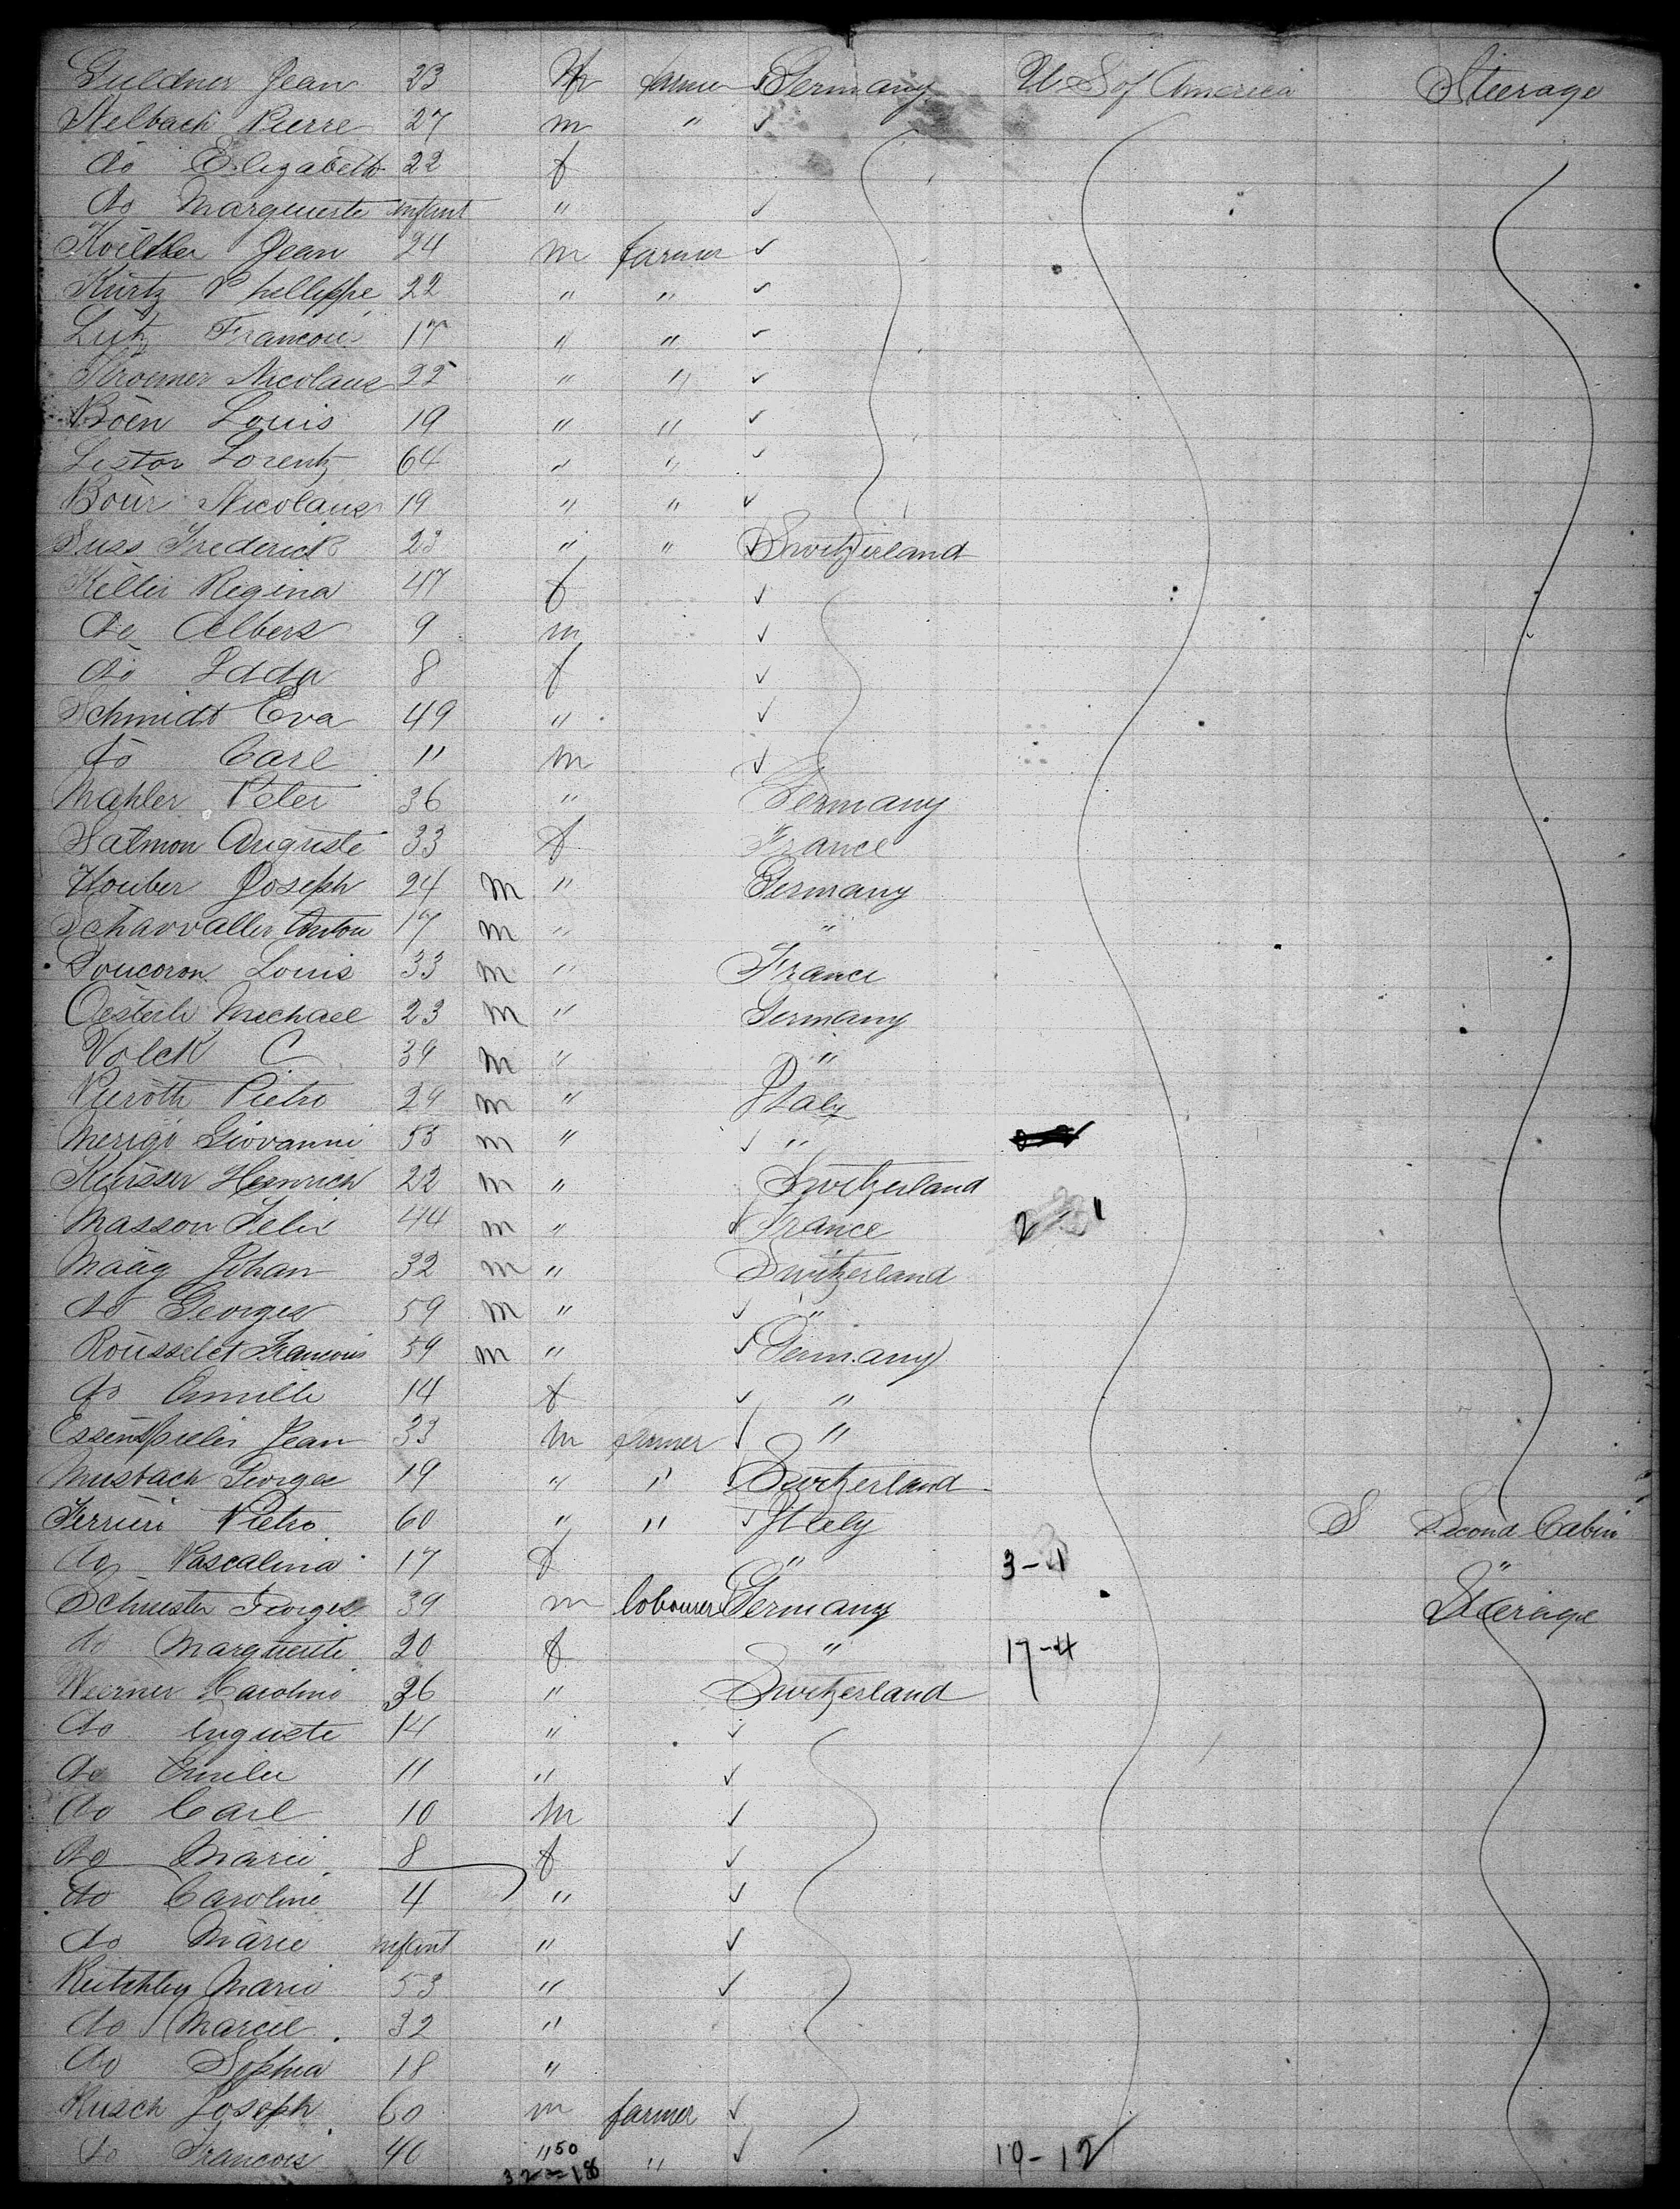 Guldner Jean 23 m farmer ✓ Germany U S of America Steerage
Nelbach Pierre 27 m " ✓
do Elizabeth 22 f
do Marguerite infant " ✓
Jean 24 m farmer ✓
Kurtz Phillippe 22 " " ✓
Lutz Francois 17 " " ✓
Kroemer Nicolaus 22 " " ✓
Boën Louis 19 " " ✓
Lestor Lorentz 64 " " ✓
Bour Nicolaus 19 " " ✓
Suss Frederick 23 " " ✓ Switzerland
Keller Regina 47 f ✓
do Albers 9 m ✓
do Idda 8 f ✓
Schmidt Eva 49 " ✓
do Carl 11 m ✓
Mahler Peter 36 " Germany
Salmon Auguste 33 f France
Houber Joseph 24 m " Germany
Scharvaller Anton 17 m " "
Doucoron Louis 33 m " France
Oesterle Michael 23 m " Germany
Volck C 39 m " "
Pierotti Pietro 29 m " Italy
Merigi Giovanni 55 m " ✓ "
Heinrich 22 m " Switzerland
Masson Felix 44 m " ✓ France 2 - 1
Maag Johan 32 m " Switzerland
do Georges 59 m " ✓ "
Rousselet Francois 59 m " ✓ Germany
do Camille 14 f ✓ "
Essenspreler Jean 33 m farmer ✓ "
Musbach Georges 19 " " Switzerland
Ferrieri Pietro 60 " " ✓ Italy S Second Cabin
do Pascalina 17 f " 3 - 1 "
Schuester Georges 39 m labourer Germany Steerage
do Marguerite 20 f " 17 - 4
Werner Caroline 36 " Switzerland
do Auguste 14 " ✓
do Emilie 11 " ✓
do Carl 10 m ✓
do Marie 8 f ✓
do Caroline 4 " ✓
do Marie infant " ✓
Marie 53 " ✓
do Marcel 32 "
do Sophia 18 "
Rusch Joseph 60 m farmer ✓
do Francois 40 " 50 " ✓ 19 - 12
32 - 18